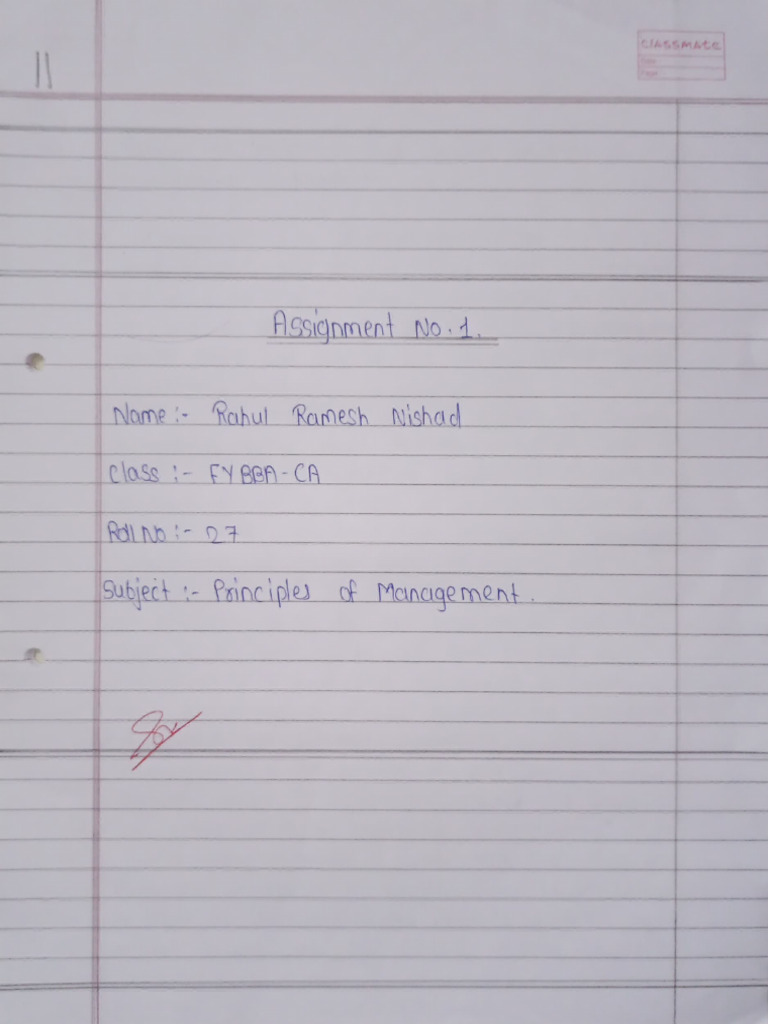 classmate
Date
Page
Assignment No. 1.
Name :- Rahul Ramesh Nishad
Class :- FYBBA-CA
Roll No :- 27
Subject :- Principles of Management.